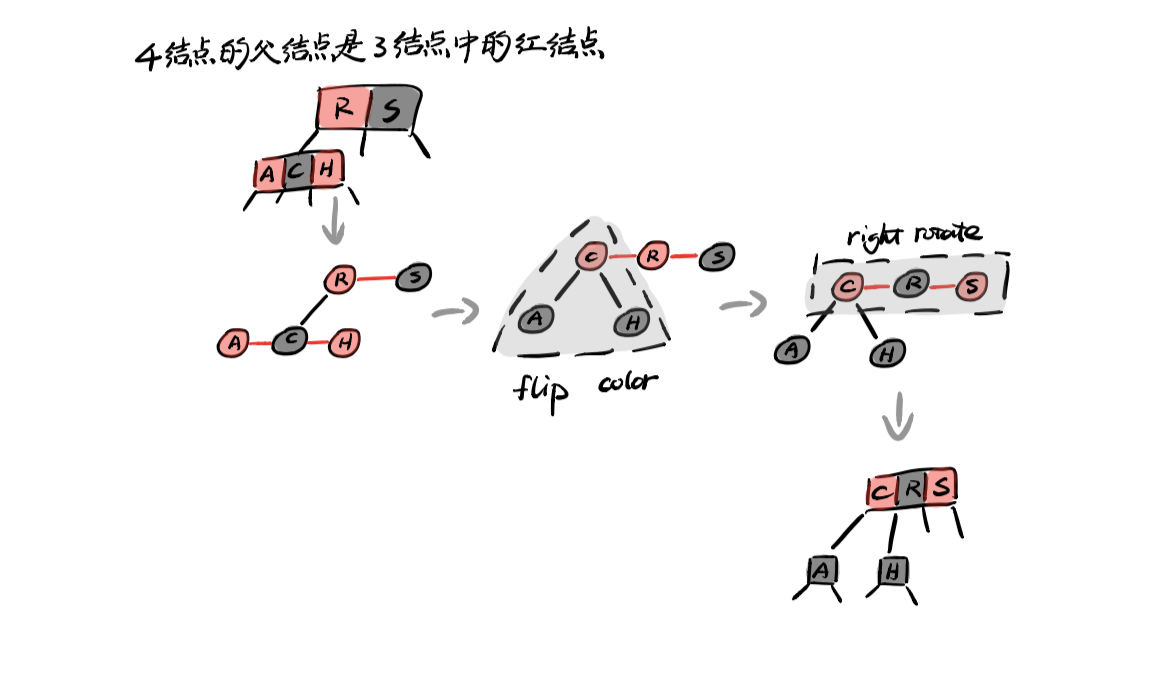 4结点的父结点是3结点中的红结点
R S
A C H
R S
A C H
C R S
A H
flip color
right rotate
C R S
A H
C R S
A H